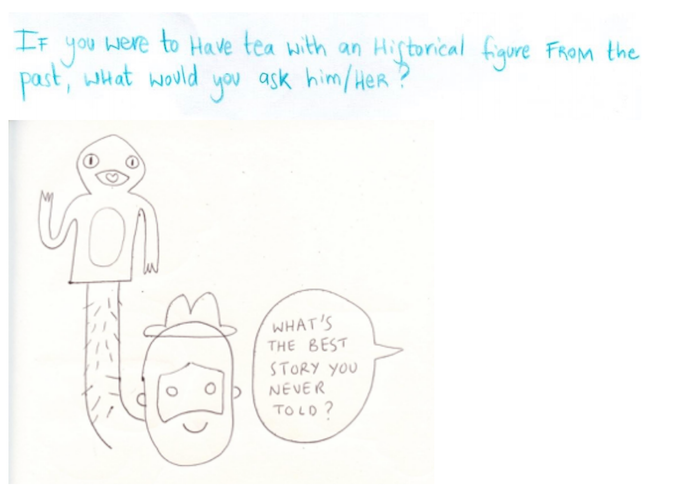 IF you were to Have tea with an Historical figure FROM the
past, what would you ask him/HER?
WHAT'S
THE BEST
STORY YOU
NEVER
TOLD?